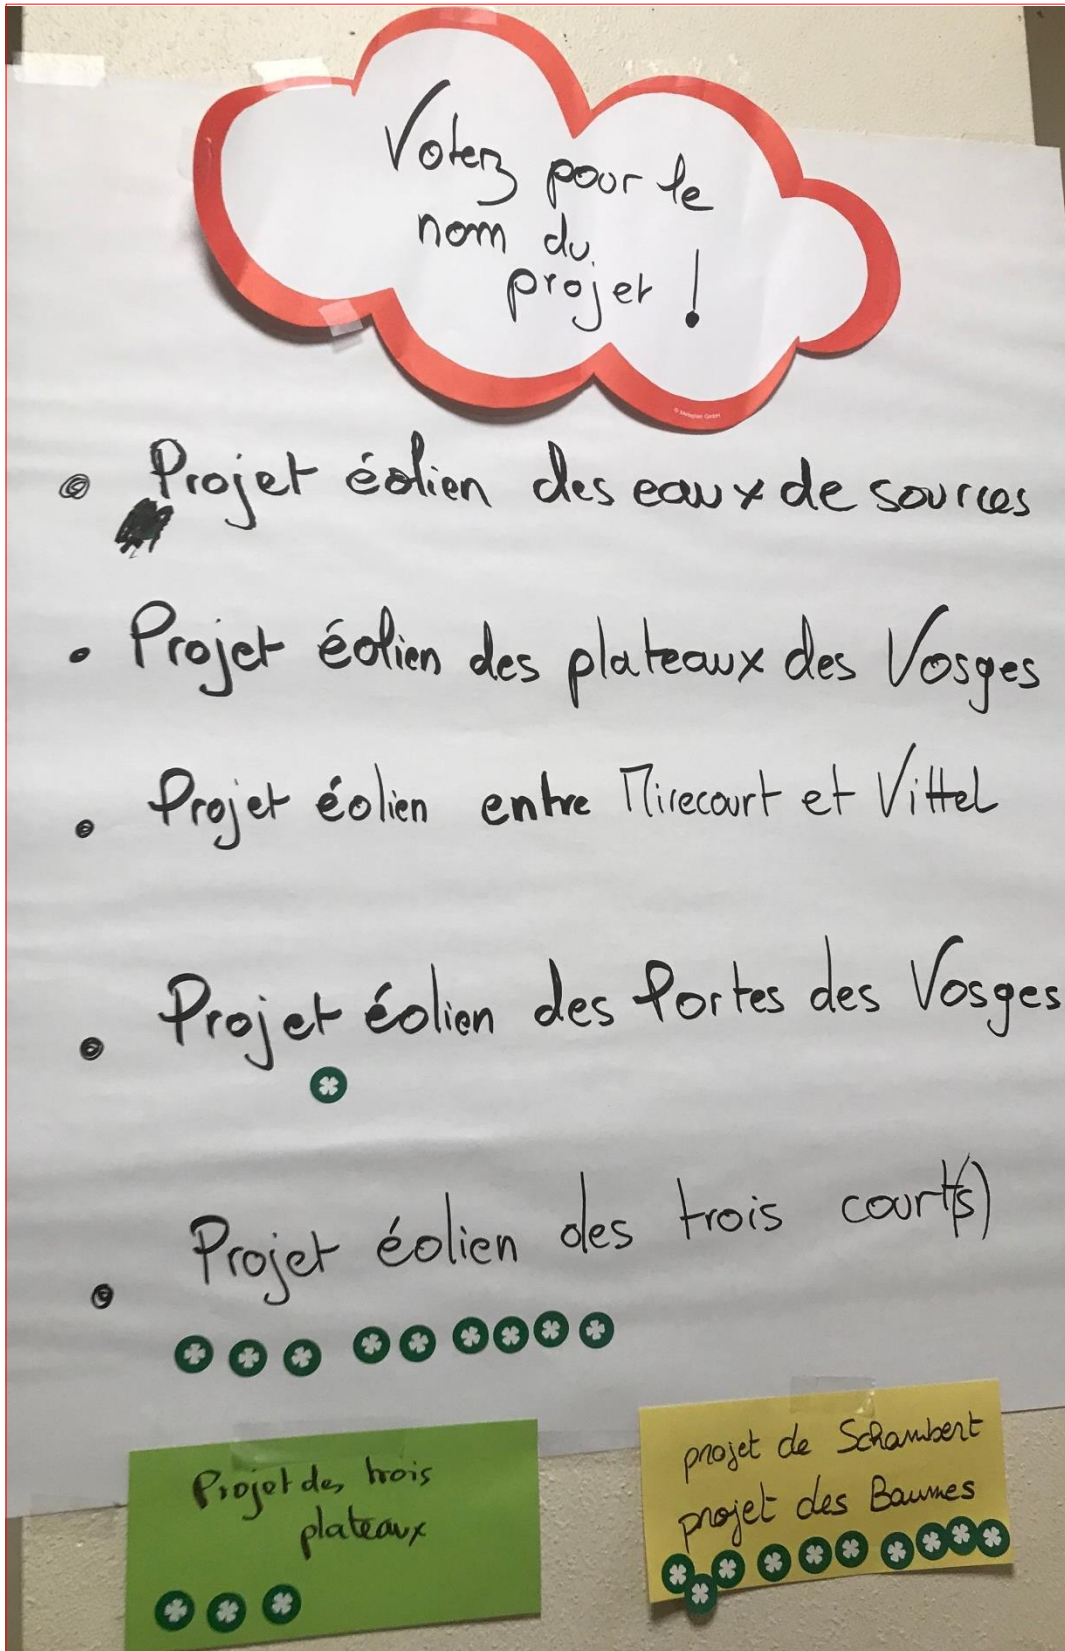 Votez pour le
nom du
projet !
© Metaplan GmbH
Projet éolien des eaux de sources
Projet éolien des plateaux des Vosges
Projet éolien entre Mirecourt et Vittel
Projet éolien des Portes des Vosges
Projet éolien des trois court(s)
Projet des trois
plateaux
projet de Schambert
projet des Baumes